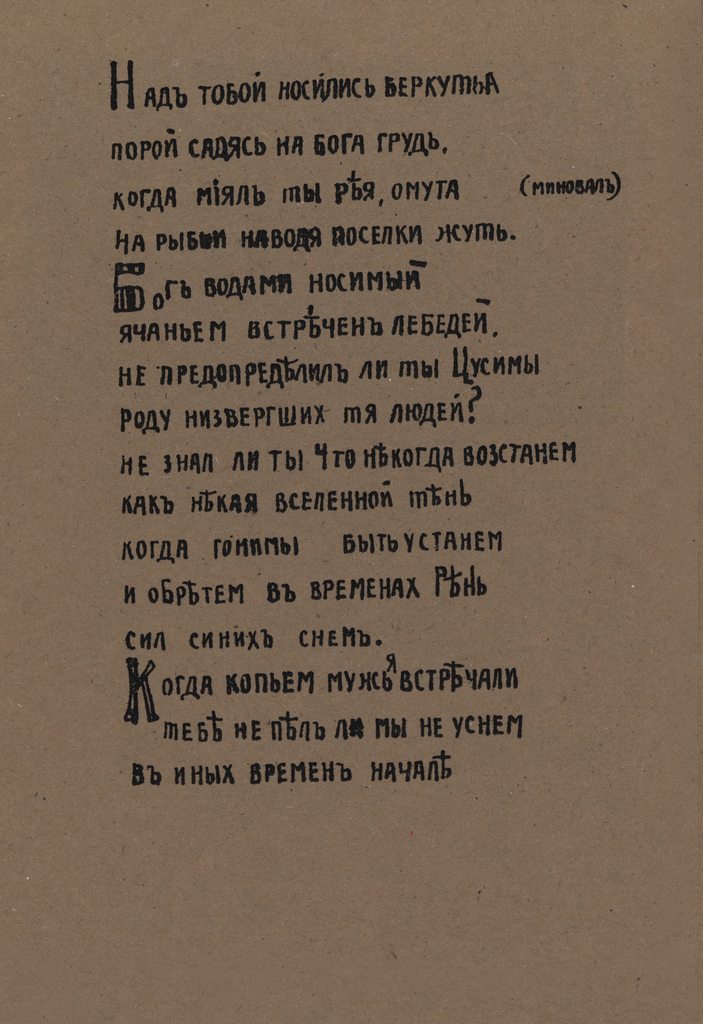 Надъ тобой носились беркута
порой садясь на бога грудь,
когда мiялъ ты рѣя, омута (миновалъ)
на рыбьи наводя поселки жуть.
Богъ водами носимый
ячаньем встрѣченъ лебедей,
не предопредѣлилъ ли ты Цусимы
роду низвергших тя людей?
не знал ли ты что нѣкогда возстанем
какъ нѣкая вселенной тѣнь
когда гонимы быть устанем
и обрѣтем въ временах Рѣнь
сил синихъ снемъ.
Когда копьем мужья встрѣчали
тебѣ не пѣлъ ли мы не уснем
въ иных временъ началѣ